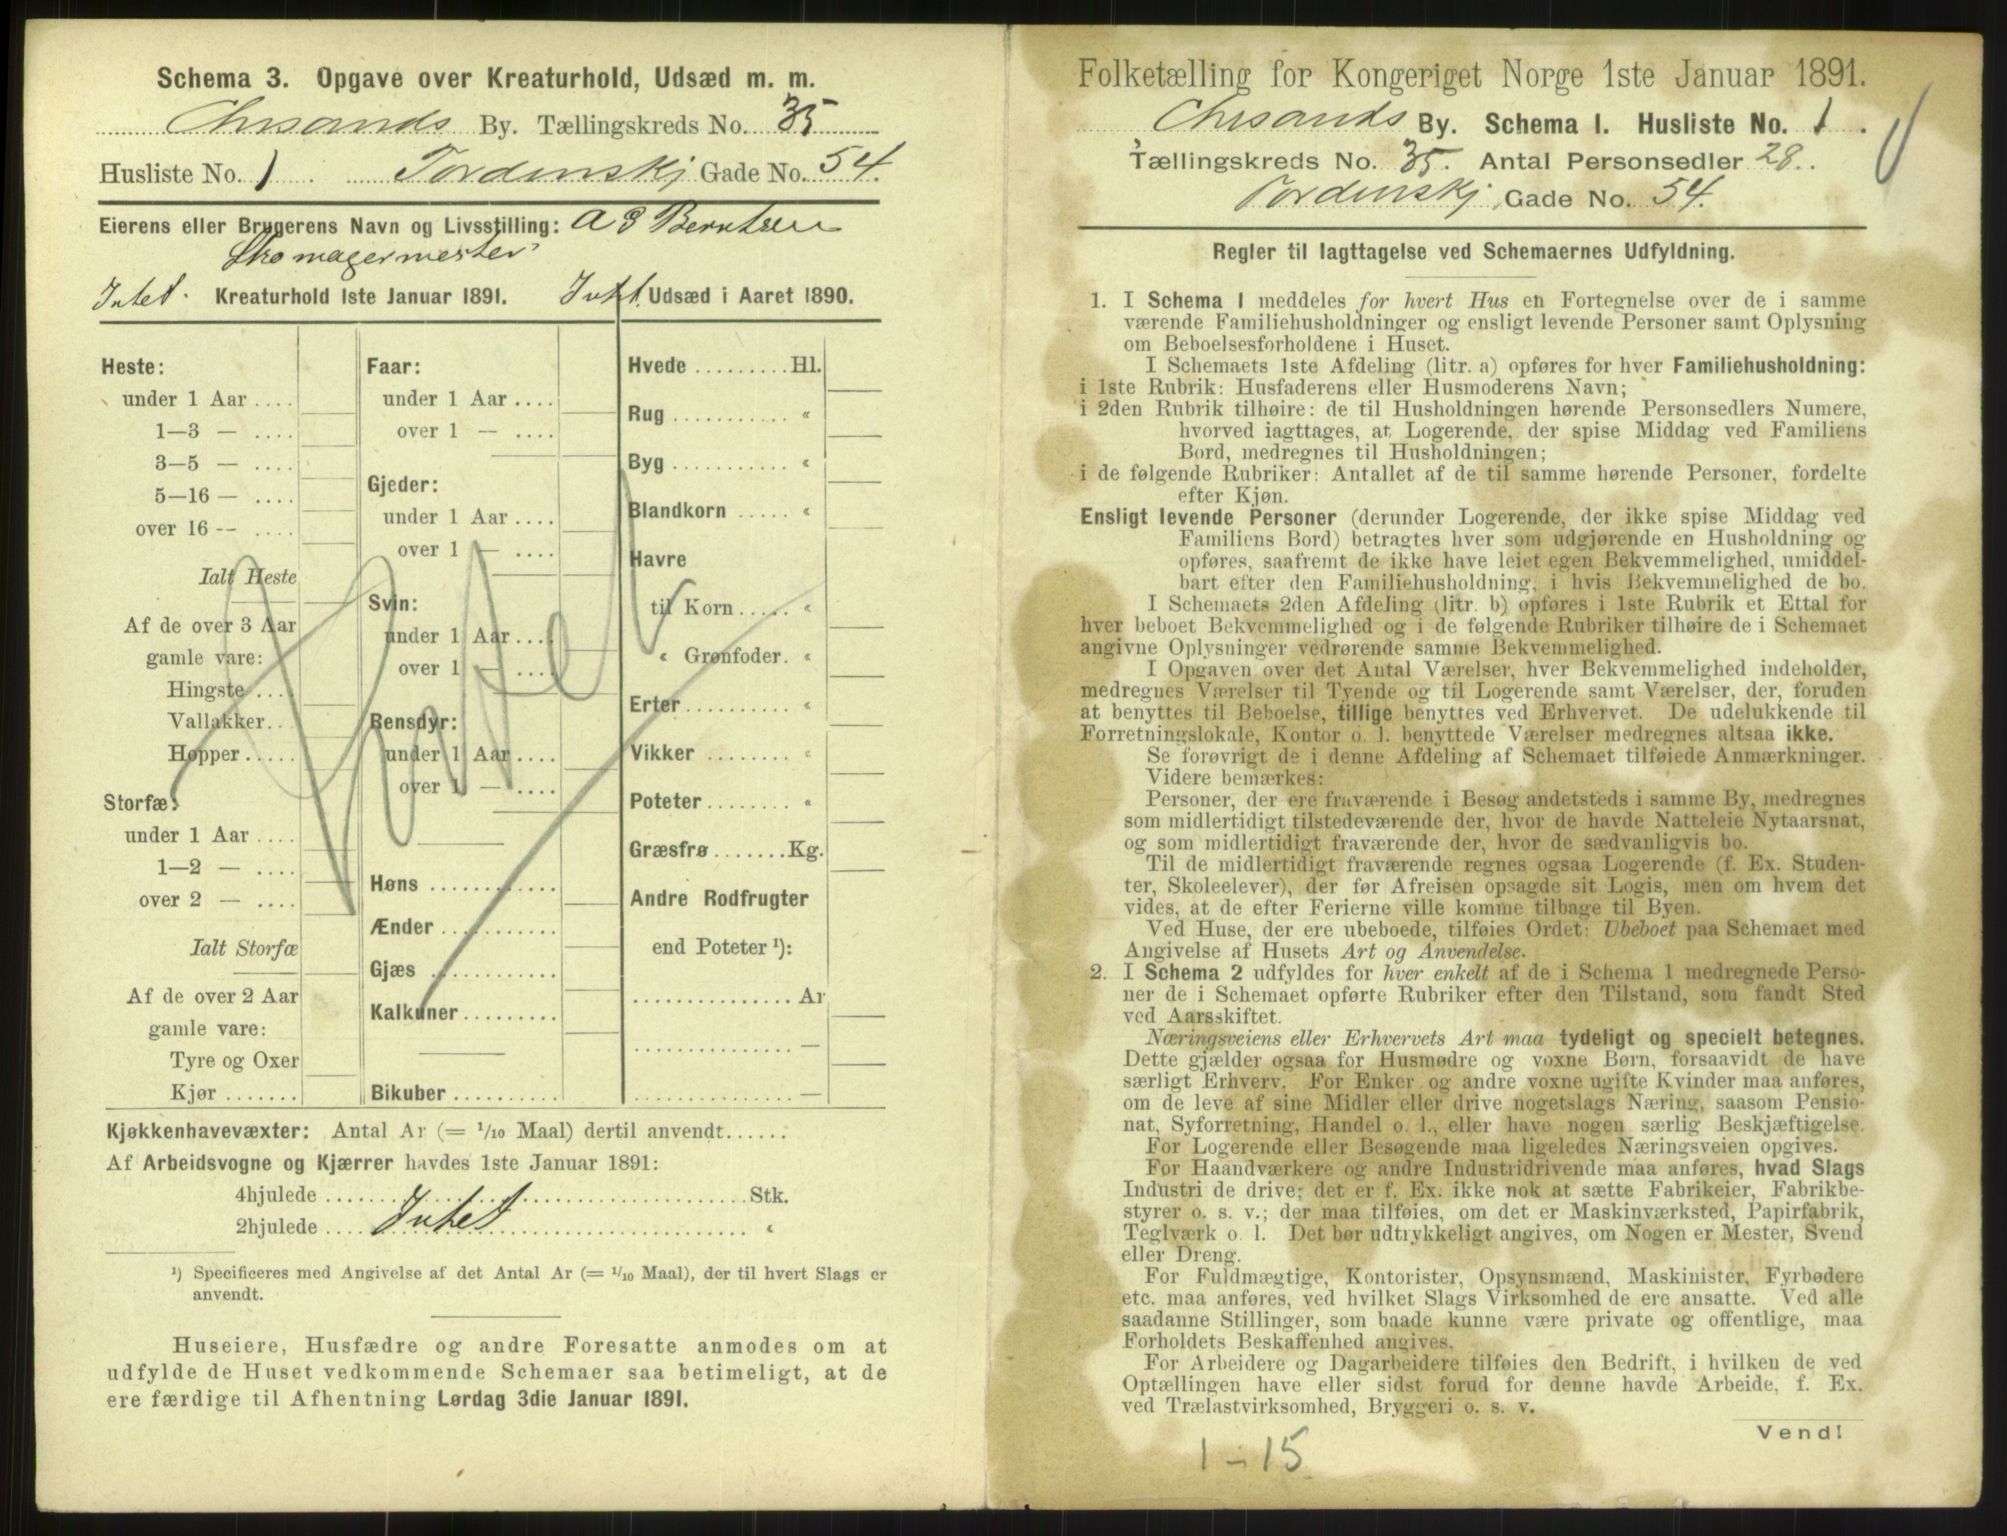 Schema 3. Opgave over Kreaturhold, Udsæd m. m.
Chrsands By. Tællingskreds No. 35
Husliste No. 1 Tordenskj Gade No. 54.
Eierens eller Brugerens Navn og Livsstilling: A S Berntsen
Skomagermester
Intet. Kreaturhold 1ste Januar 1891. Intet. Udsæd i Aaret 1890.
Heste:
under 1 Aar ....
1—3 — ....
3—5 — ....
5—16 — ....
over 16 -- ....
Ialt Heste
Af de over 3 Aar
gamle vare:
Hingste ....
Vallakker...
Hopper.....
Storfæ:
under 1 Aar ....
1—2 — ....
over 2 — ....
Ialt Storfæ
Af de over 2 Aar
gamle vare:
Tyre og Oxer
Kjør .......
Faar:
under 1 Aar ....
over 1 — ....
Gjeder:
under 1 Aar ....
over 1 — ....
Svin:
under 1 Aar ....
over 1 — ....
Rensdyr:
under 1 Aar ....
over 1 — ....
Høns ............
Ænder ...........
Gjæs ............
Kalkuner.........
Bikuber ..........
Hvede ......... Hl.
Rug ........... «
Byg ........... «
Blandkorn ..... «
Havre
til Korn ..... «
« Grønfoder. «
Erter.......... «
Vikker ........ «
Poteter........ «
Græsfrø .......Kg.
Andre Rodfrugter
end Poteter ¹):
............... Ar
............... —
............... —
Kjøkkenhavevæxter: Antal Ar (= 1/10 Maal) dertil anvendt......
Af Arbeidsvogne og Kjærrer havdes 1ste Januar 1891:
4hjulede ........................................Stk.
2hjulede .... Intet ........................ «
¹) Specificeres med Angivelse af det Antal Ar (= 1/10 Maal), der til hvert Slags er
anvendt.
Huseiere, Husfædre og andre Foresatte anmodes om at
udfylde de Huset vedkommende Schemaer saa betimeligt, at de
ere færdige til Afhentning Lørdag 3die Januar 1891.
Folketælling for Kongeriget Norge 1ste Januar 1891.
Chrsands By. Schema I. Husliste No. 1.
Tællingskreds No. 35. Antal Personsedler 28..
Tordenskj. Gade No. 54.
Regler til Iagttagelse ved Schemaernes Udfyldning.
1. I Schema 1 meddeles for hvert Hus en Fortegnelse over de i samme
værende Familiehusholdninger og ensligt levende Personer samt Oplysning
om Beboelsesforholdene i Huset.
I Schemaets 1ste Afdeling (litr. a) opføres for hver Familiehusholdning:
i 1ste Rubrik: Husfaderens eller Husmoderens Navn;
i 2den Rubrik tilhøire: de til Husholdningen hørende Personsedlers Numere,
hvorved iagttages, at Logerende, der spise Middag ved Familiens
Bord, medregnes til Husholdningen;
i de følgende Rubriker: Antallet af de til samme hørende Personer, fordelte
efter Kjøn.
Ensligt levende Personer (derunder Logerende, der ikke spise Middag ved
Familiens Bord) betragtes hver som udgjørende en Husholdning og
opføres, saafremt de ikke have leiet egen Bekvemmelighed, umiddel-
bart efter den Familiehusholdning, i hvis Bekvemmelighed de bo.
I Schemaets 2den Afdeling (litr. b) opføres i 1ste Rubrik et Ettal for
hver beboet Bekvemmelighed og i de følgende Rubriker tilhøire de i Schemaet
angivne Oplysninger vedrørende samme Bekvemmelighed.
I Opgaven over det Antal Værelser, hver Bekvemmelighed indeholder,
medregnes Værelser til Tyende og til Logerende samt Værelser, der, foruden
at benyttes til Beboelse, tillige benyttes ved Erhvervet. De udelukkende til
Forretningslokale, Kontor o. l. benyttede Værelser medregnes altsaa ikke.
Se forøvrigt de i denne Afdeling af Schemaet tilføiede Anmærkninger.
Videre bemærkes:
Personer, der ere fraværende i Besøg andetsteds i samme By, medregnes
som midlertidigt tilstedeværende der, hvor de havde Natteleie Nytaarsnat,
og som midlertidigt fraværende der, hvor de sædvanligvis bo.
Til de midlertidigt fraværende regnes ogsaa Logerende (f. Ex. Studen-
ter, Skoleelever), der før Afreisen opsagde sit Logis, men om hvem det
vides, at de efter Ferierne ville komme tilbage til Byen.
Ved Huse, der ere ubeboede, tilføies Ordet: Ubeboet paa Schemaet med
Angivelse af Husets Art og Anvendelse.
2. I Schema 2 udfyldes for hver enkelt af de i Schema 1 medregnede Perso-
ner de i Schemaet opførte Rubriker efter den Tilstand, som fandt Sted
ved Aarsskiftet.
Næringsveiens eller Erhvervets Art maa tydeligt og specielt betegnes.
Dette gjælder ogsaa for Husmødre og voxne Børn, forsaavidt de have
særligt Erhverv. For Enker og andre voxne ugifte Kvinder maa anføres,
om de leve af sine Midler eller drive nogetslags Næring, saasom Pensio-
nat, Syforretning, Handel o. l., eller have nogen særlig Beskjæftigelse.
For Logerende eller Besøgende maa ligeledes Næringsveien opgives.
For Haandværkere og andre Industridrivende maa anføres, hvad Slags
Industri de drive; det er f. Ex. ikke nok at sætte Fabrikeier, Fabrikbe-
styrer o. s. v.; der maa tilføies, om det er Maskinværksted, Papirfabrik,
Teglværk o. l. Det bør udtrykkeligt angives, om Nogen er Mester, Svend
eller Dreng.
For Fuldmægtige, Kontorister, Opsynsmænd, Maskinister, Fyrbødere
etc. maa anføres, ved hvilket Slags Virksomhed de ere ansatte. Ved alle
saadanne Stillinger, som baade kunne være private og offentlige, maa
Forholdets Beskaffenhed angives.
For Arbeidere og Dagarbeidere tilføies den Bedrift, i hvilken de ved
Optællingen have eller sidst forud for denne havde Arbeide, f. Ex.
ved Trælastvirksomhed, Bryggeri o. s. v.
Vend!
1-15